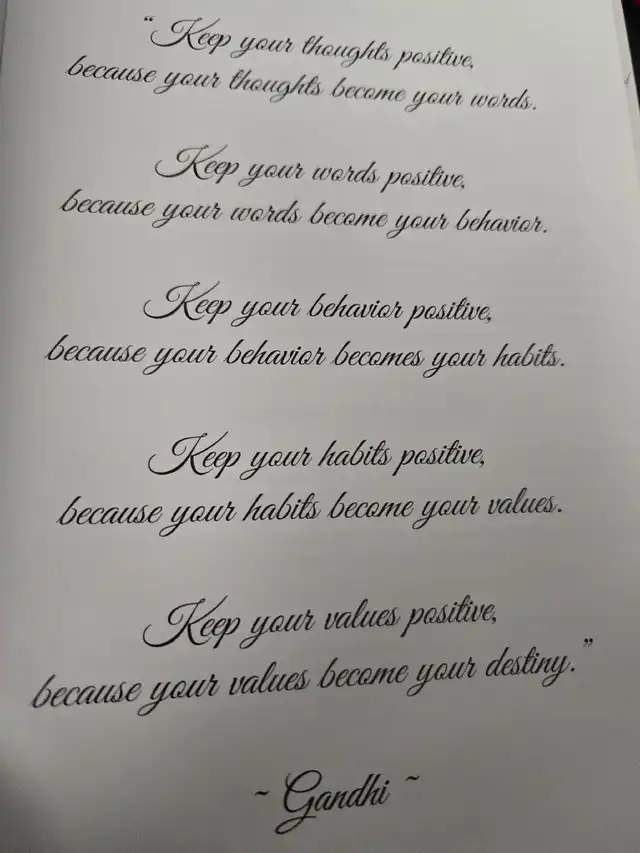 “Keep your thoughts positive,
because your thoughts become your words.
Keep your words positive,
because your words become your behavior.
Keep your behavior positive,
because your behavior becomes your habits.
Keep your habits positive,
because your habits become your values.
Keep your values positive,
because your values become your destiny.”
~ Gandhi ~